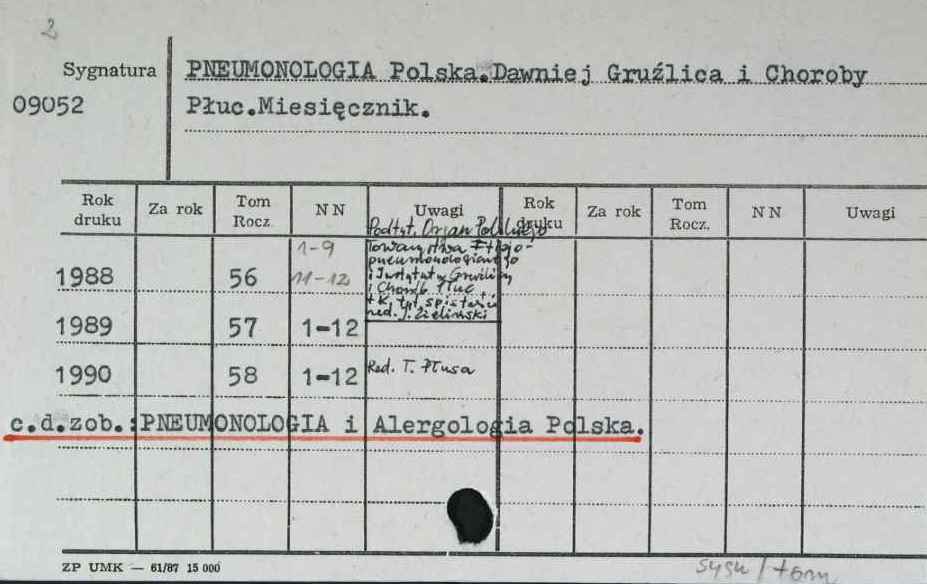 2
Sygnatura PNEUMONOLOGIA Polska.Dawniej Gruźlica i Choroby
09052 Płuc.Miesięcznik.
Rok druku Za rok Tom Rocz. NN Uwagi Rok druku Za rok Tom Rocz. NN Uwagi
Podtyt. Organ Polskiego
Towarzystwa Ftyzjo-
pneumonologicznego
i Instytutu Gruźlicy
i Chorób Płuc
red. J. Zieliński
1988 56 1-9
11-12
1989 57 1-12
1990 58 1-12 Red. T. Płusa
c.d.zob.:PNEUMONOLOGIA i Alergologia Polska.
ZP UMK — 61/87 15 000
sygn/tom